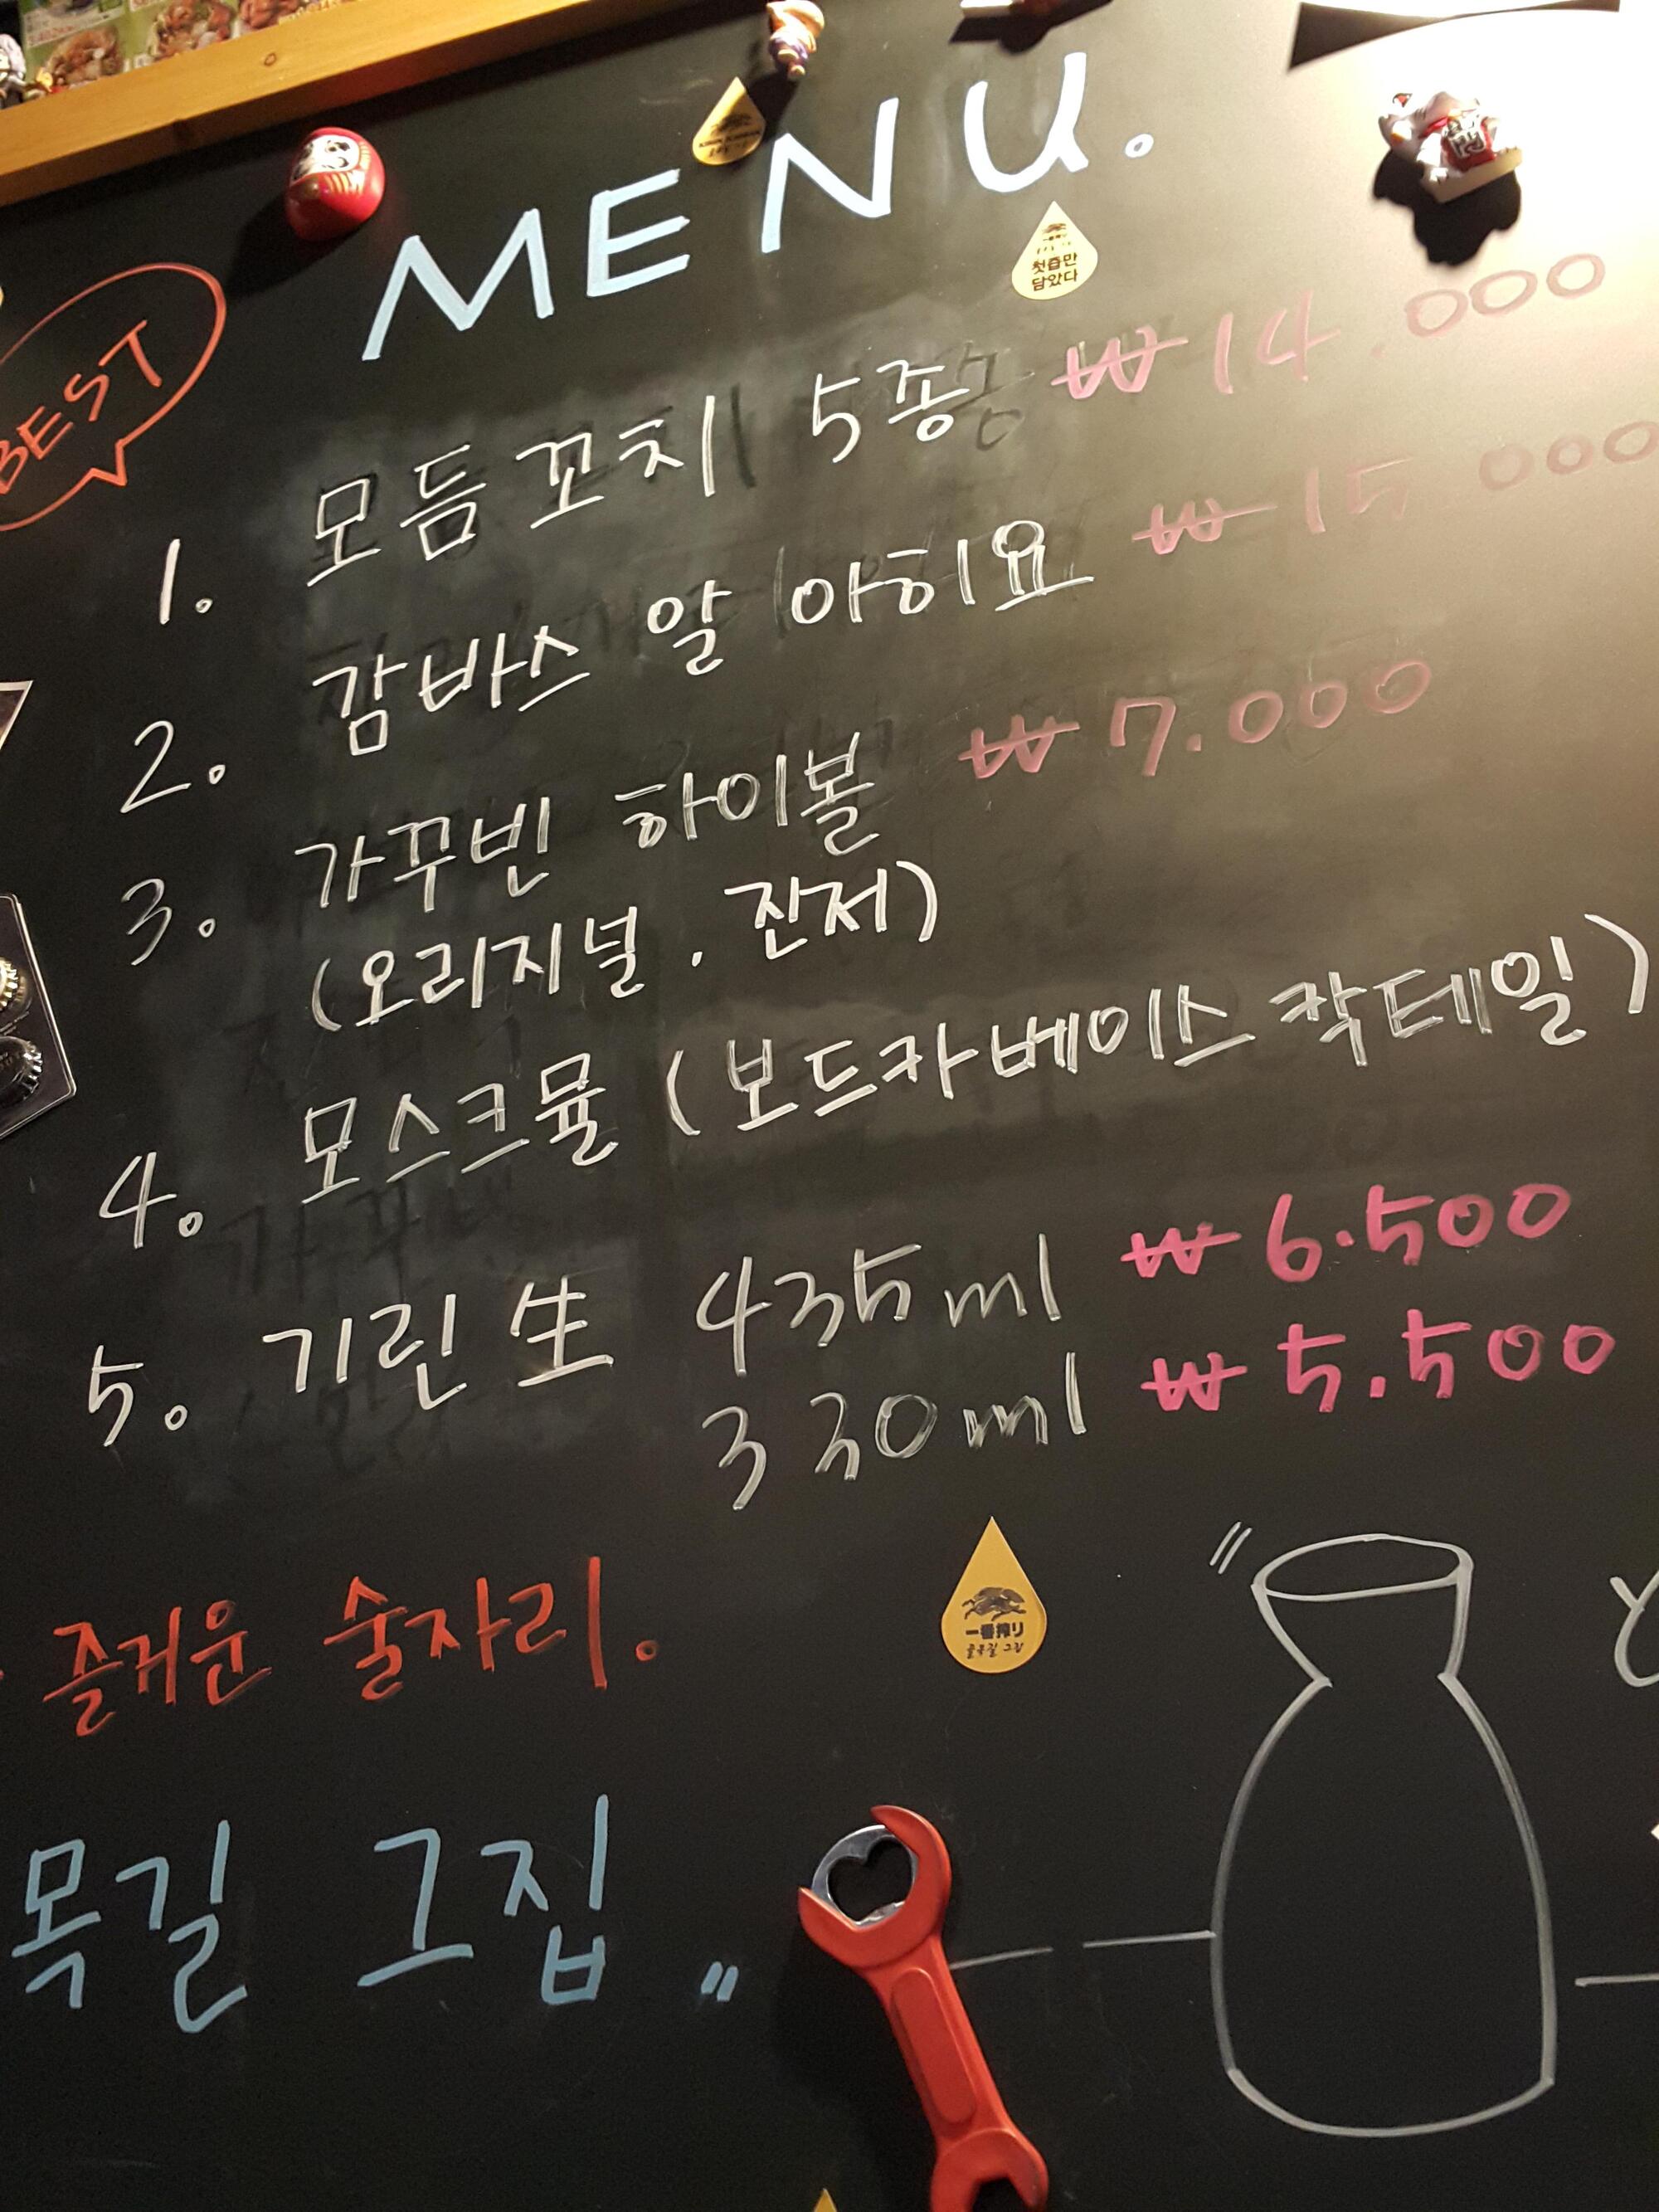 MENU.
BEST
첫즙만
담았다
1. 모듬꼬치 5종 ₩14.000
2. 감바스 알 아히요 ₩15.000
3. 가꾸빈 하이볼 ₩7.000
(오리지널.진저)
4. 모스크뮬 (보드카베이스칵테일)
5. 기린生 435ml ₩6.500
330ml ₩5.500
즐거운 술자리.
一番搾り
목길 그집